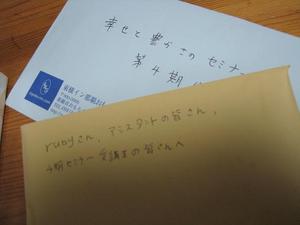 幸せと豊かさの セミナ
第4期
東横イン那覇
rubyさん、アシスタントの皆さん、
4期セミナー受講生の皆さんへ